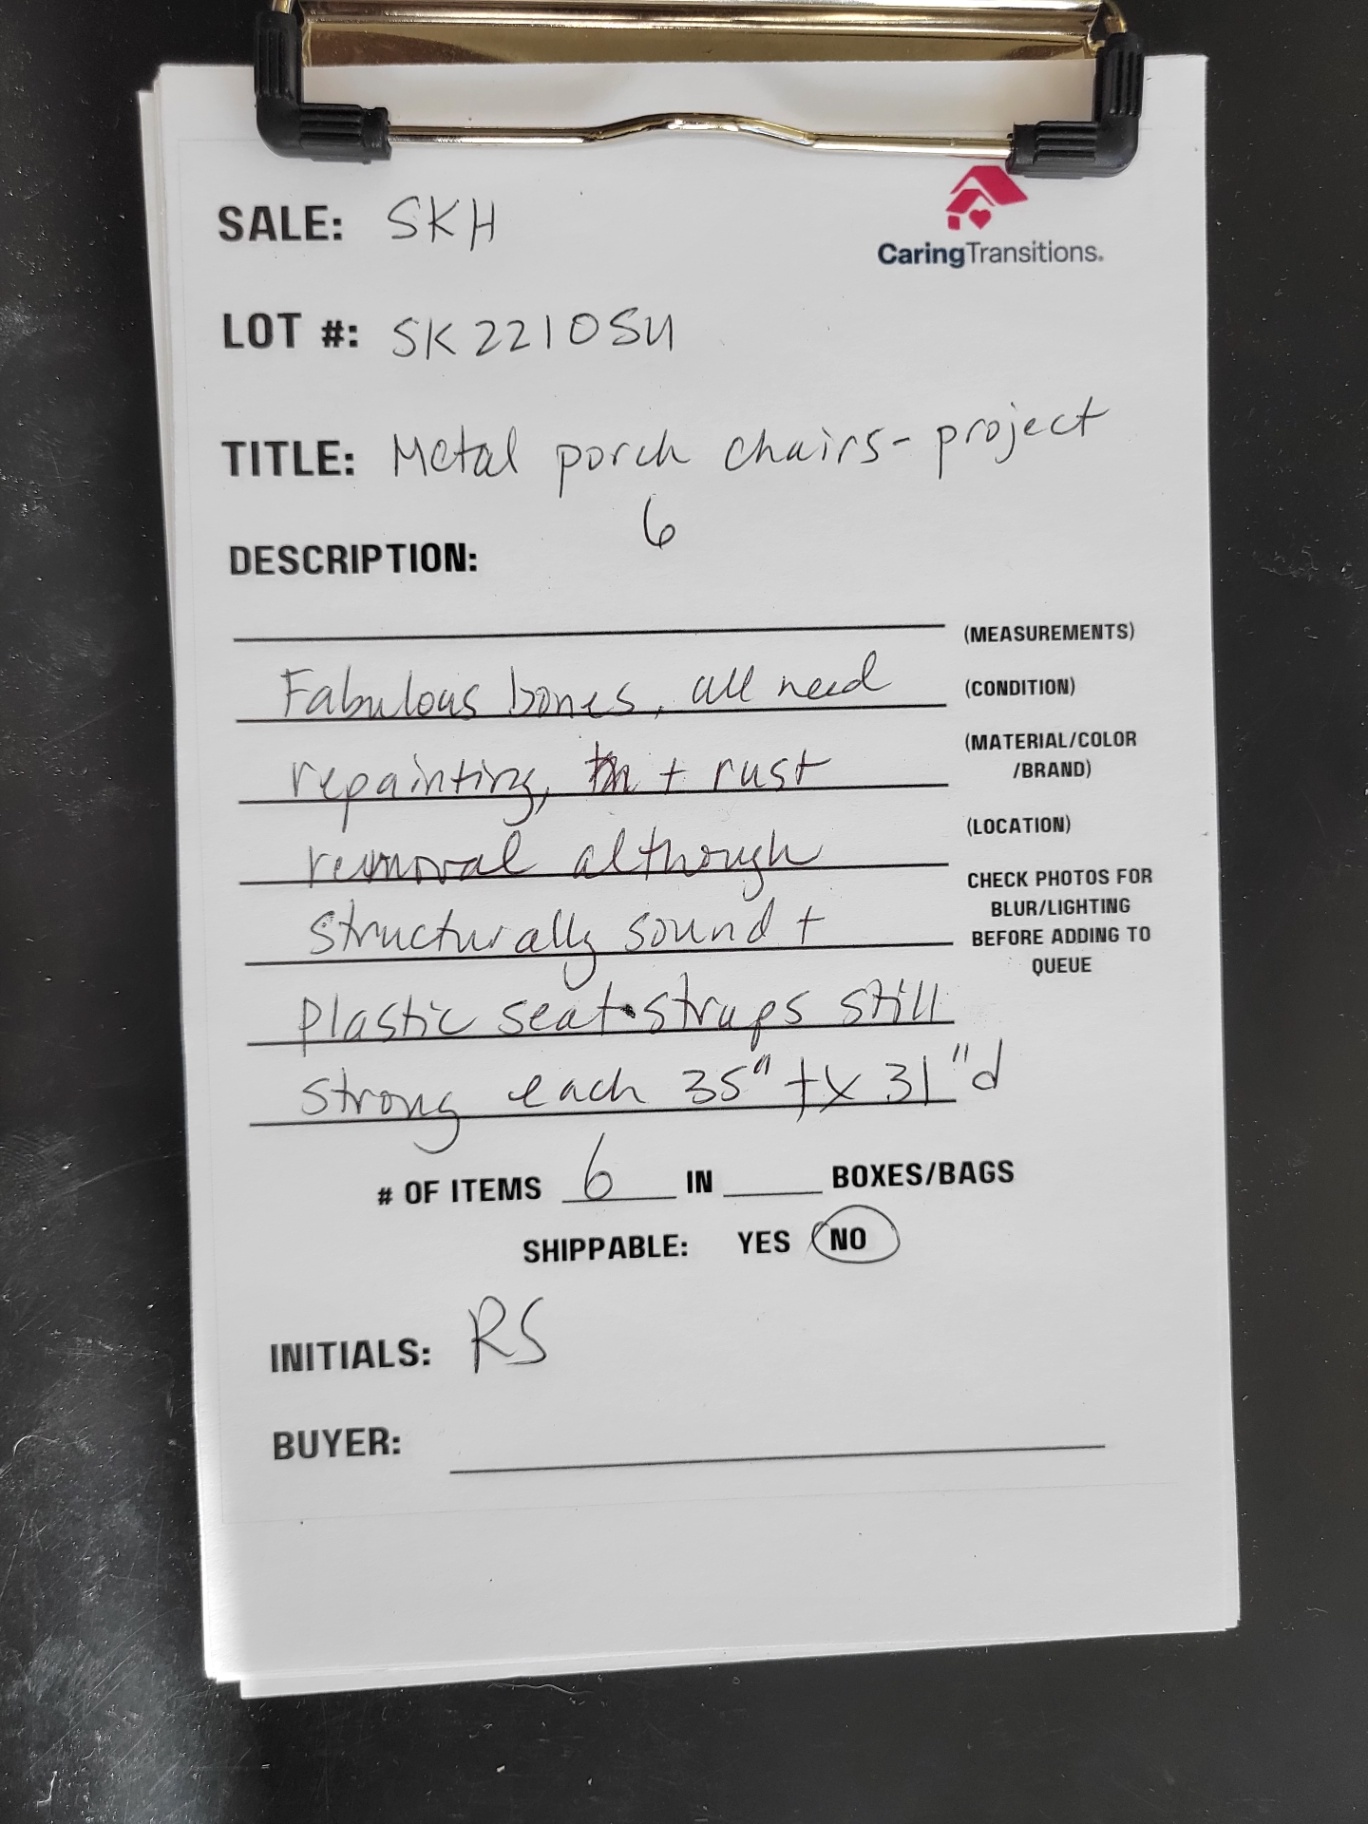 SALE: SKH
CaringTransitions.
LOT #: SK2210SU
TITLE: Metal porch chairs - project
6
DESCRIPTION:
(MEASUREMENTS)
Fabulous bones, all need (CONDITION)
repainting, + rust (MATERIAL/COLOR
/BRAND)
removal although (LOCATION)
CHECK PHOTOS FOR
BLUR/LIGHTING
structurally sound + BEFORE ADDING TO
QUEUE
plastic seat straps still
strong each 35" t x 31" d
# OF ITEMS 6 IN ____ BOXES/BAGS
SHIPPABLE: YES NO
INITIALS: RS
BUYER: